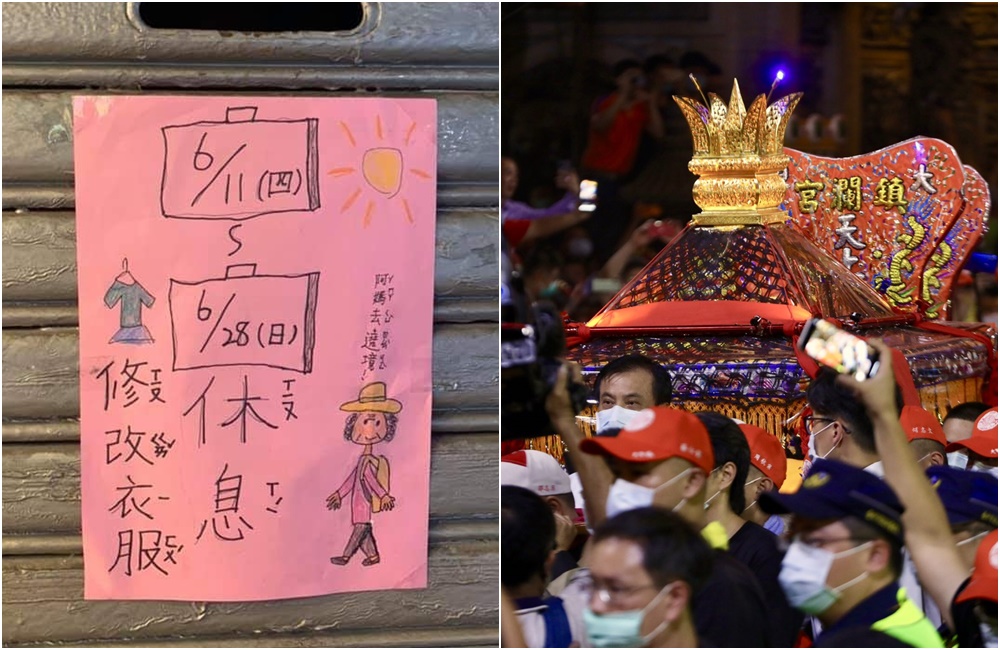 6/11(四)
S
6/28(日)
休息
修改衣服
阿媽去遶境!
大
鎮瀾宮
天上